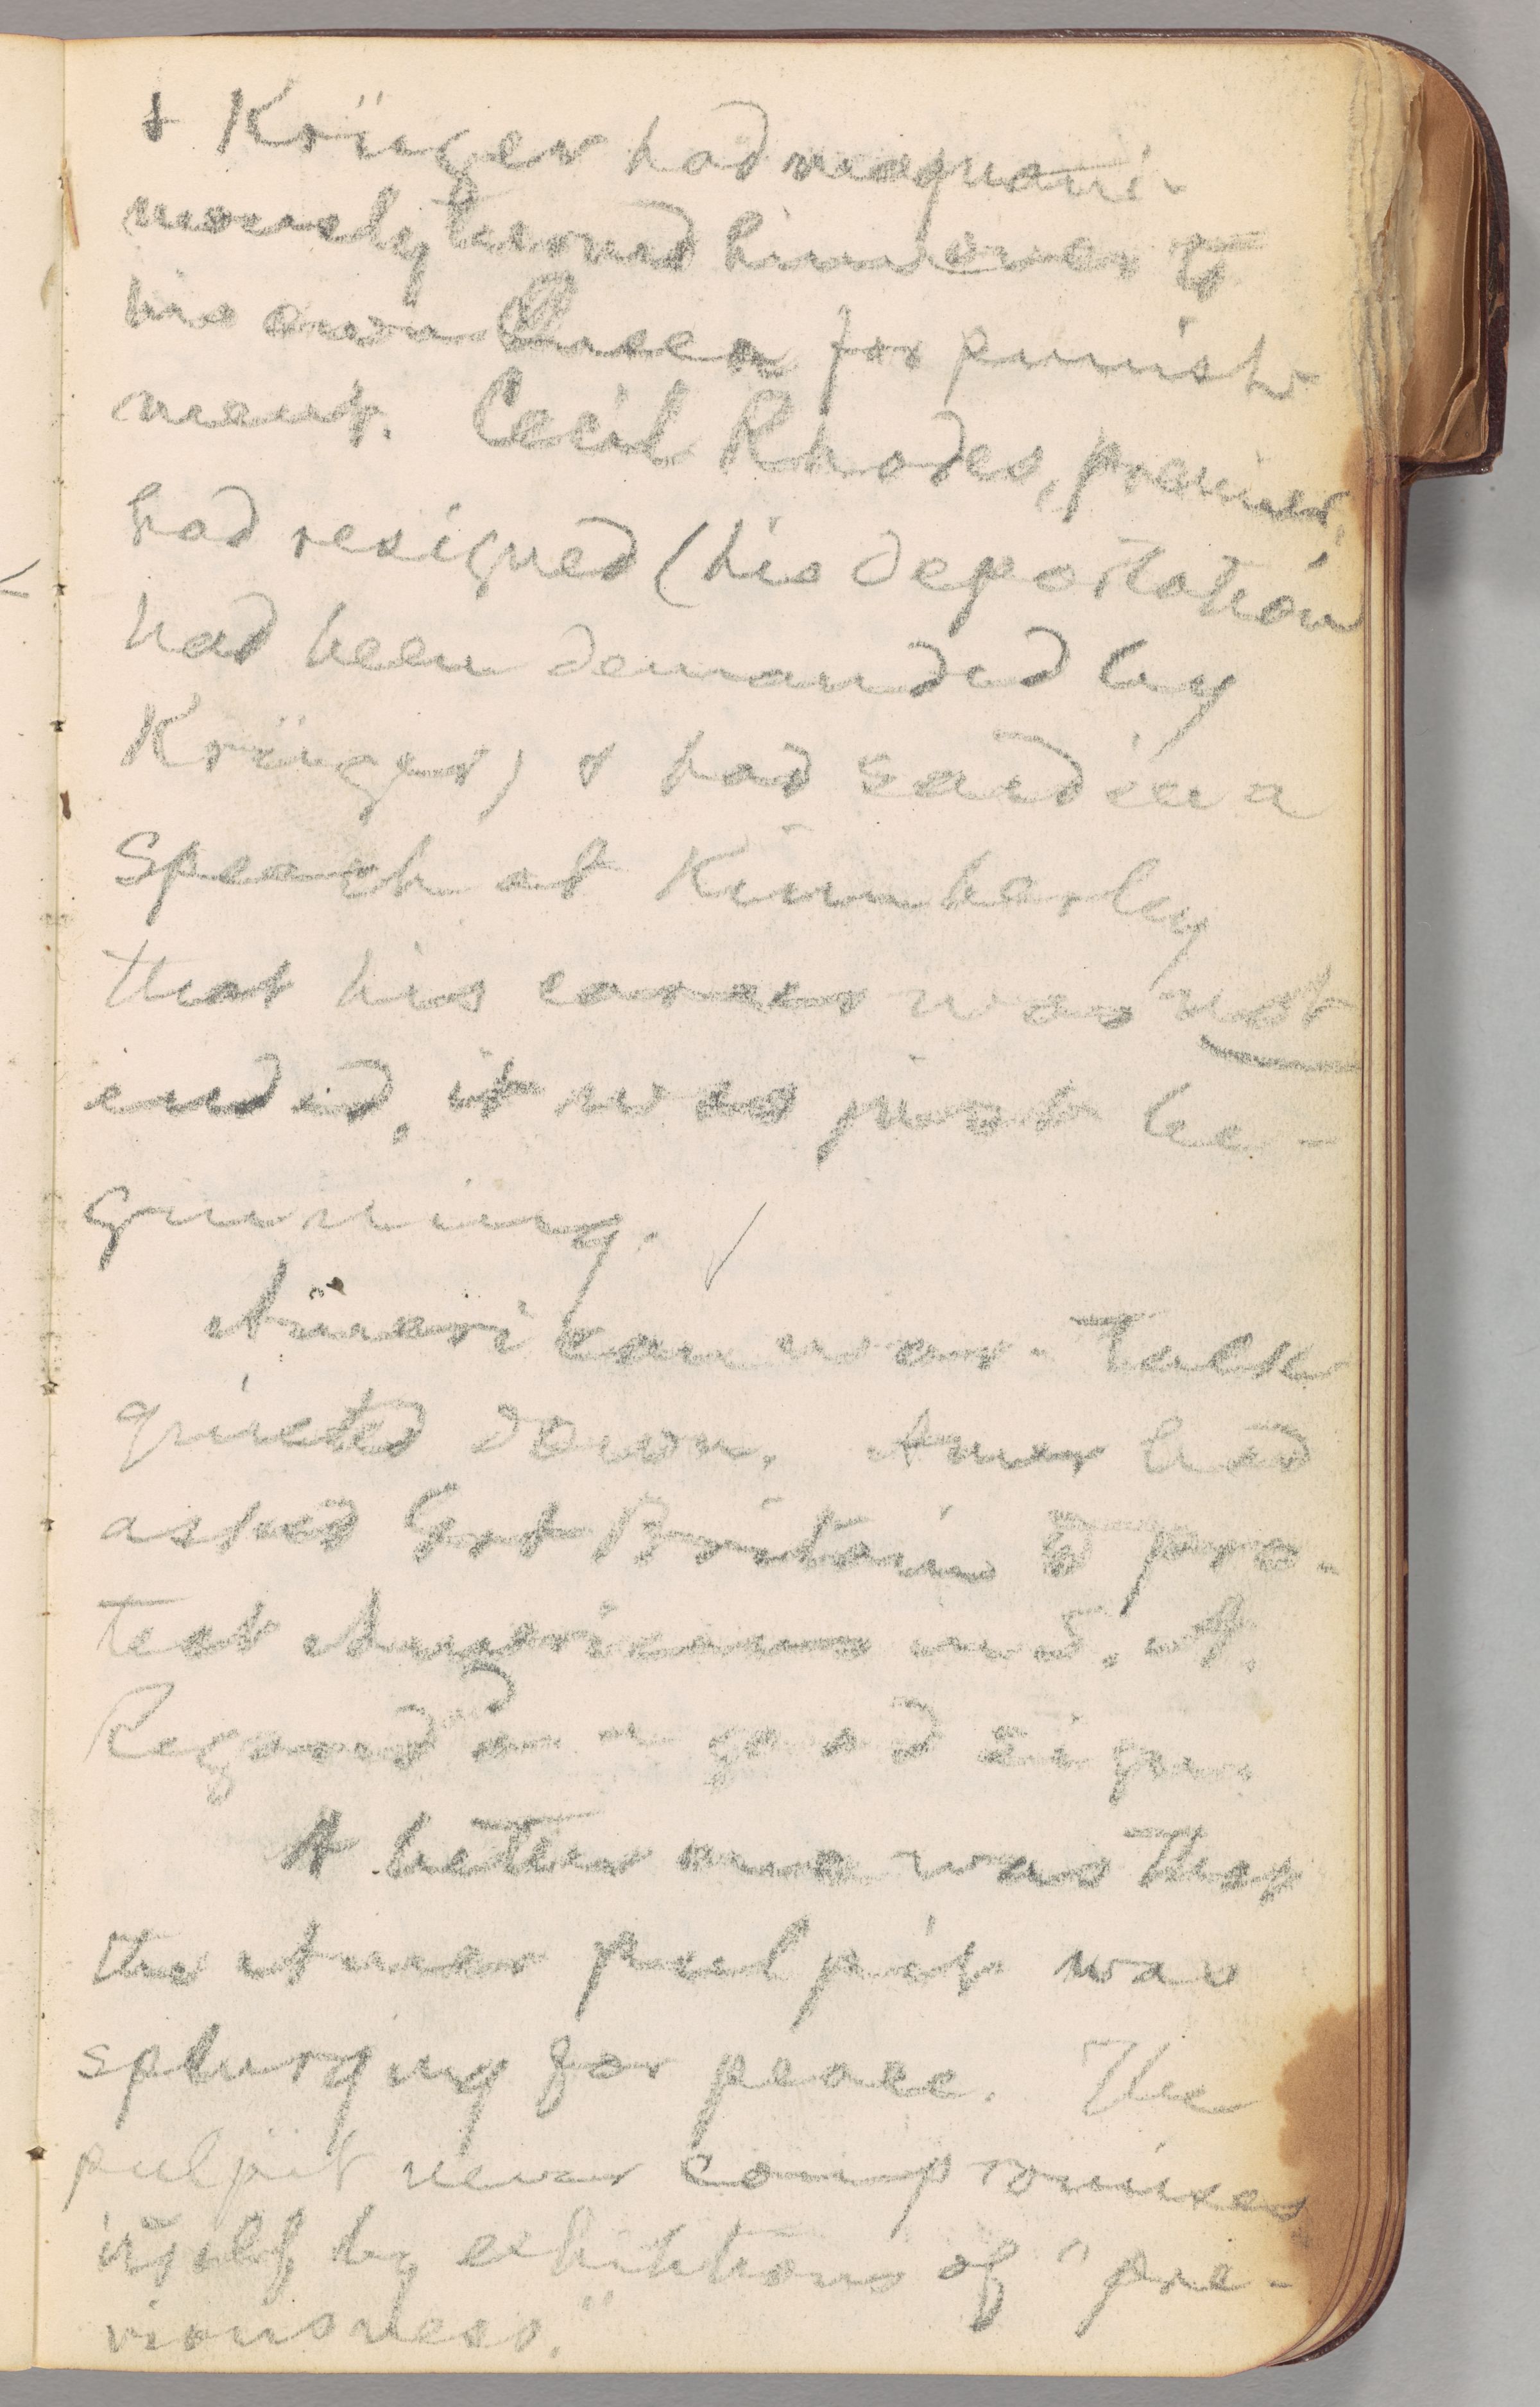 & Krüger had magnani-
mously turned him over to
his own Queen for punish-
ment. Cecil Rhodes, premier,
had resigned (his deportation
had been demanded by
Krüger) & had said in a
speech at Kimberley
that his career was not
ended, it was just be-
ginning.
American war-talk
quieted down. Amer had
asked Grt Britain to pro-
tect Americans in S. A.
Regarded as a good sign.
A better one was that
the Amer pulpit was
splurging for peace. The
pulpit never compromises
itself by exhibitions of "pre-
viousness."